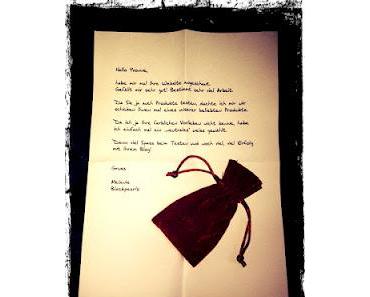 Hallo
habe mir mal Ihre Website angeschaut.
Gefällt mir sehr gut! Bestimmt sehr viel Arbeit.
Da Sie ja auch Produkte testen, dachte ich mir wir
schicken Ihnen mal eines unserer beliebten Produkte.
Da ich ja Ihre farblichen Vorlieben nicht kenne, habe
ich einfach mal ein 'neutrales' weiss gewählt.
Dann viel Spass beim Testen und noch viel, viel Erfolg
mit Ihrem Blog!
Gruss
Melanie